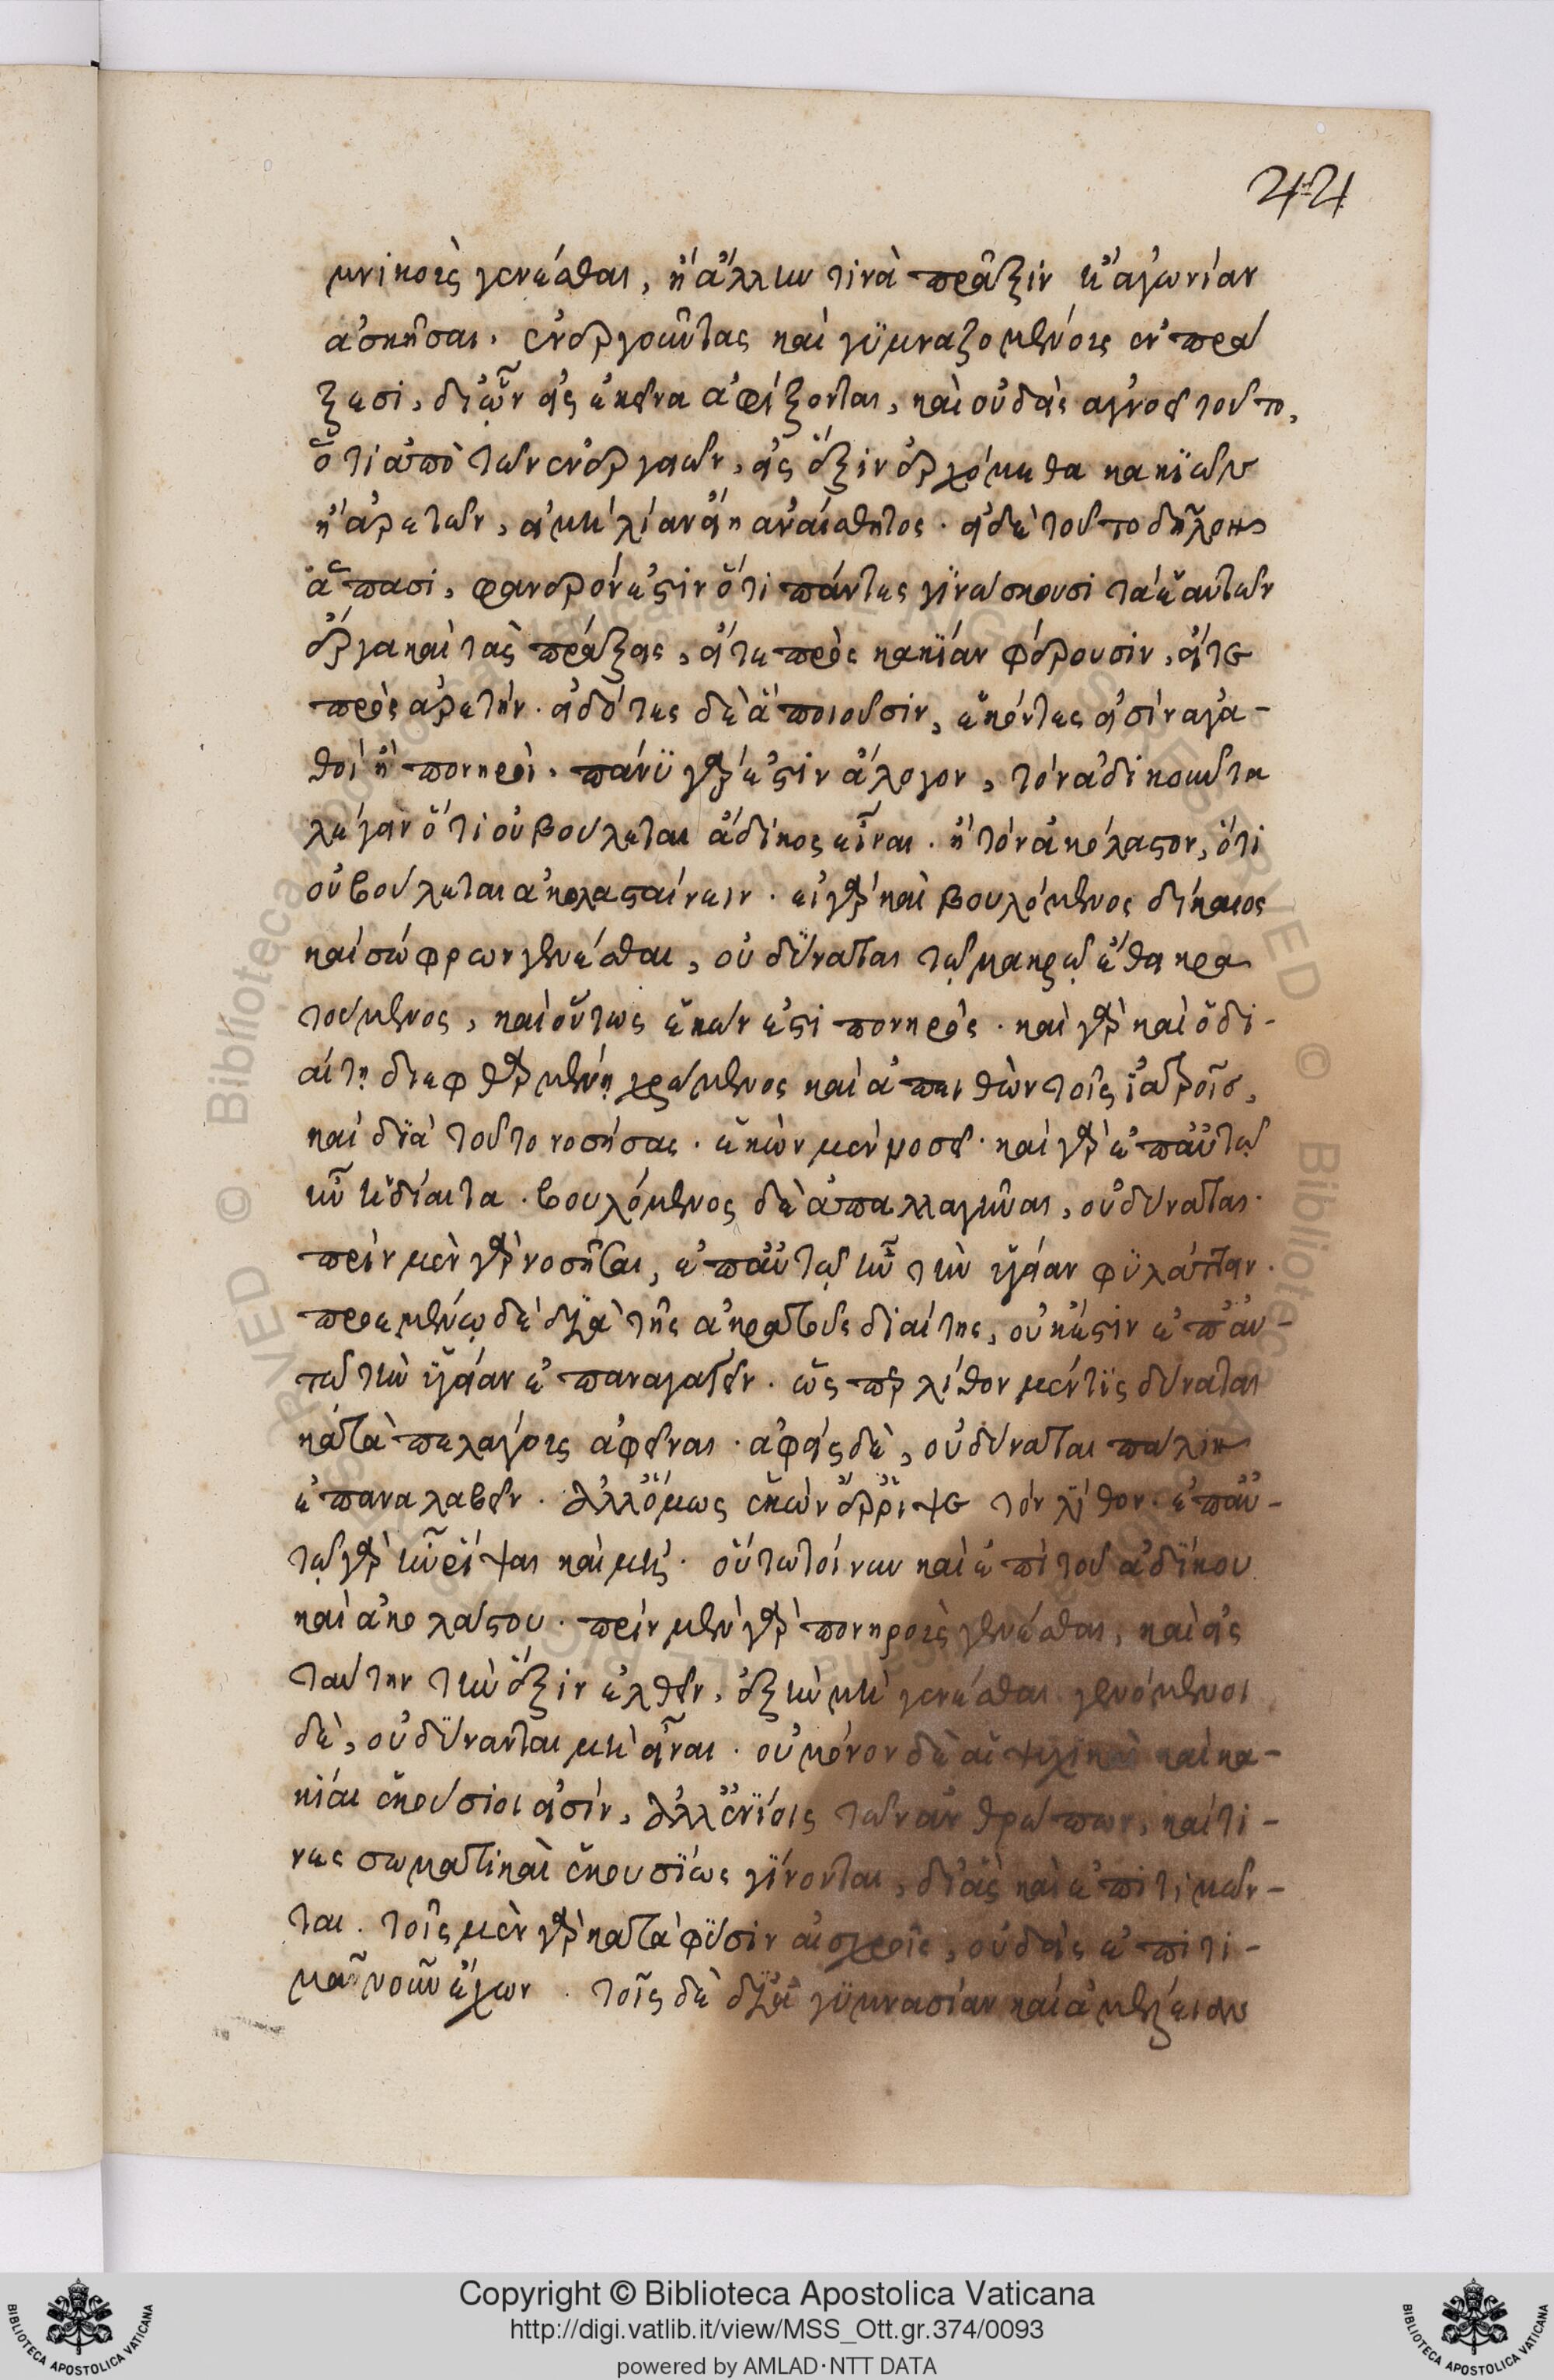 44
μνικοὺς γενέσθαι, ἢ ἄλλην τινὰ πράξιν ἢ ἀγωνίαν
ἀσκῆσαι. ἐνεργοῦντας καὶ γϋμναζομένοις ἐν πρά
ξεσι, δι ὧν εἰς ἐκεῖνα ἀφίξονται, καὶ οὐδεὶς ἀγνοεῖ τοῦτο,
ὅτι ἀπὸ τῶν ἐνεργειῶν, εἰς ἕξιν ἐρχόμεθα κακϊῶν
ἢ ἀρετῶν, εἰ μὴ λίαν εἴη ἀναίσθητος. εἰ δὲ τοῦτο δῆλον
ἅπασι, φανερόν ἐστιν ὅτι πάντες γϊνώσκουσι τὰ ἑαυτῶν
ἔργα καὶ τὰς πράξεις, εἴτε πρὸς κακϊάν φέρουσιν, εἴτε
πρὸς ἀρετήν. εἰδότες δὲ ἃ ποιοῦσιν, ἑκόντες εἰσίν ἀγα-
θοί ἢ πονηροί. πάνϋ γάρ ἐστιν ἄλογον, τόν ἀδικοῦντα
λέγειν ὅτι οὐ βούλεται ἄδικος εἶναι. ἢ τόν ἀκόλαστον, ὅτι
οὐ βούλεται ἀκολασταίνειν. εἰ γάρ καὶ βουλόμενος δίκαιος
καί σώφρων γενέσθαι, οὐ δΰναται τῷ μακρῷ ἔθει κρα
τούμενος, καὶ οὕτως ἑκών ἐστι πονηρός. καὶ γὰρ καὶ ὁ δι-
αίτῃ διεφθαρμένῃ χρώμενος καὶ ἀπειθὼν τοῖς ἰατροῖς,
καί δϊὰ τοῦτο νοσήσας. ἑκὼν μὲν νοσεῖ. καί γὰρ ἐπ αὐτῷ
ἦν ἡ δίαιτα. βουλόμενος δὲ ἀπαλλαγῆναι, οὐ δύναται.
πρίν μὲν γὰρ νοσῆσαι, ἐπ αὐτῷ ἦν τὴν ὑγείαν φϋλάττειν.
προεμένῳ δὲ διὰ τῆς ἀκρατοῦς διαίτης, οὐκ ἔστιν ἐπ αὐ-
τῷ τὴν ὑγείαν ἐπαναγαγεῖν. ὥς περ λίθον μέν τϊς δύναται
κατὰ πελάγους ἀφεῖναι. ἀφεὶς δὲ, οὐ δύναται πάλιν
ἐπαναλαβεῖν. ἀλλ ὅμως ἑκὼν ἔρριψε τόν λίθον. ἐπ αὐ-
τῷ γὰρ ἦν ῥίψαι καὶ μή. οὕτω τοίνυν καὶ ἐπὶ τοῦ ἀδίκου
καὶ ἀκολάστου. πρίν μὲν γὰρ πονηροὺς γενέσθαι, καὶ εἰς
ταύτην τὴν ἕξιν ἐλθεῖν, ἐξῆν μὴ γενέσθαι. γενόμενοι
δὲ, οὐ δΰνανται μὴ εἶναι. οὐ μόνον δὲ αἱ ψυχικαὶ κακα-
κίαι ἑκούσιοι εἰσίν, ἀλλ ἐνίοις τῶν ἀνθρώπων, καί τι-
νες σωματικαὶ ἑκουσϊως γίνονται, δι ἃς καὶ ἐπιτιμῶν-
ται. τοῖς μὲν γὰρ κατὰ φύσιν αἰσχροῖς, οὐδεὶς ἐπιτι-
μᾶ νοῦν ἔχων. τοῖς δὲ δι ἀγϋμνασίαν καὶ ἀμέλειαν
Copyright © Biblioteca Apostolica Vaticana
http://digi.vatlib.it/view/MSS_Ott.gr.374/0093
powered by AMLAD·NTT DATA